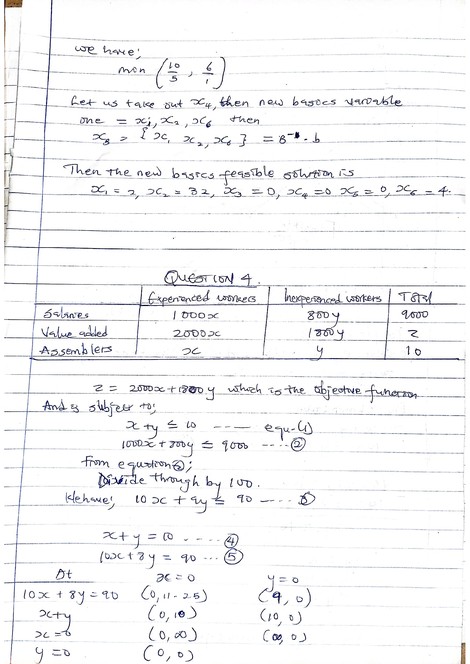 we have;
min (10/5, 6/1)
Let us take out x₄, then new basics variable
one = x₁, x₂, x₆ then
x_B = {x, x₂, x₆} = B⁻¹·b
Then the new basics feasible solution is
x₁ = 2, x₂ = 32, x₃ = 0, x₄ = 0 x₅ = 0, x₆ = 4.
QUESTION 4
Experienced workers Inexperienced workers Total
Salaries 1000x 800y 9000
Value added 2000x 1800y z
Assemblers x y 10
z = 2000x + 1800y which is the objective function
And is subject to;
x + y ≤ 10 ---- equ-(1)
1000x + 800y ≤ 9000 ---- ②
From equation ②;
Divide through by 100.
We have; 10x + 9y ≤ 90 ---- ③
x + y = 10 ---- ④
10x + 8y = 90 --- ⑤
At x = 0 y = 0
10x + 8y = 90 (0, 11-25) (9, 0)
x + y (0, 10) (10, 0)
x = 0 (0, ∞) (∞, 0)
y = 0 (0, 0)